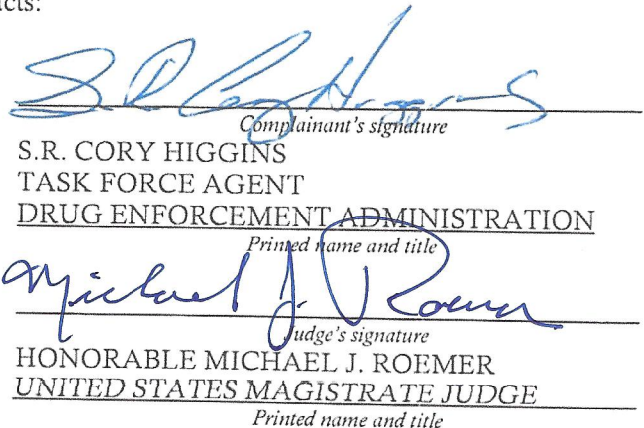 acts:
S.R. Cory Higgins
Complainant's signature
S.R. CORY HIGGINS
TASK FORCE AGENT
DRUG ENFORCEMENT ADMINISTRATION
Printed name and title
Michael J. Roemer
Judge's signature
HONORABLE MICHAEL J. ROEMER
UNITED STATES MAGISTRATE JUDGE
Printed name and title